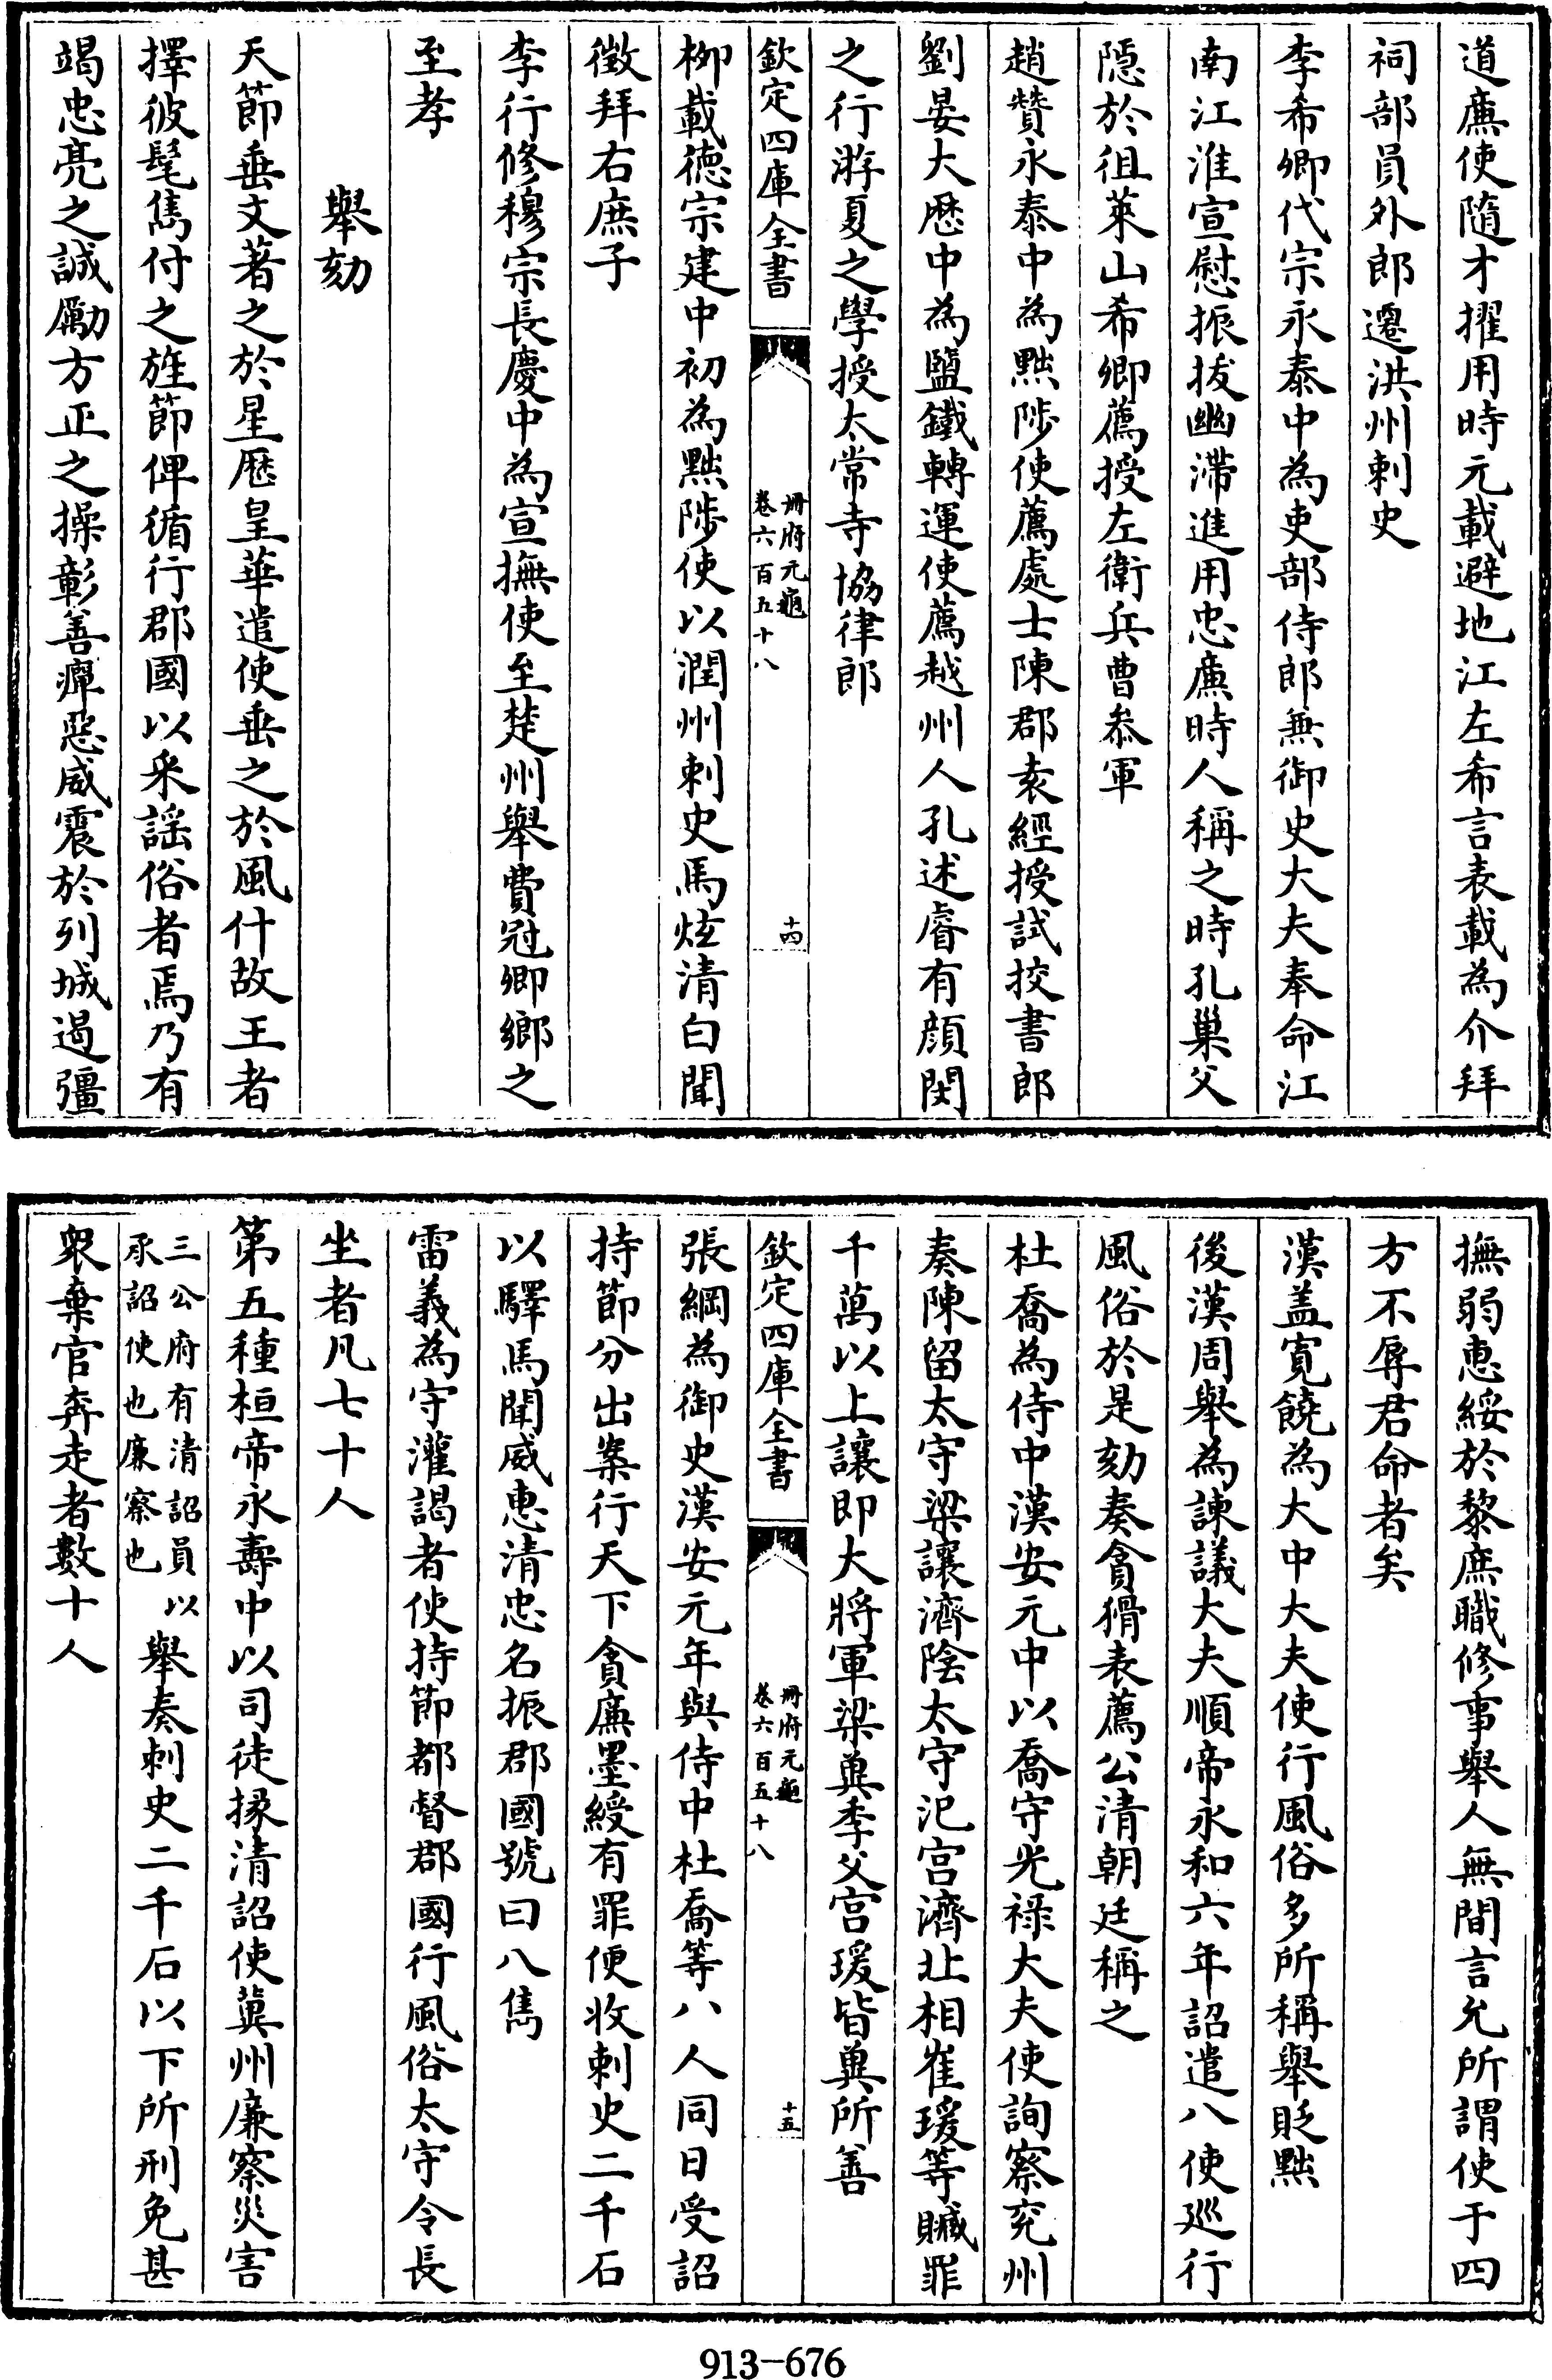 道廉使隨才擢用時元載避地江左希言表載為介拜
祠部員外郎遷洪州刺史
李希卿代宗永泰中為吏部侍郎無御史大夫奉命江
南江淮宣慰振拔幽滯進用忠廉時人稱之時孔巢父
隱於徂萊山希卿薦授左衛兵曹叅軍
趙贊永泰中為黜陟使薦處士陳郡袁經授試挍書郎
劉晏大厯中為鹽鐵轉運使薦越州人孔述睿有顔閔
之行游夏之學授太常寺協律郎
欽定四庫全書
冊府元龜
卷六百五十八
十四
栁載徳宗建中初為黜陟使以潤州刺史馬炫清白聞
徵拜右庶子
李行修穆宗長慶中為宣撫使至楚州舉費冠卿鄉之
至孝
舉劾
天節垂文著之於星厯皇華遣使垂之於風什故王者
擇彼髦雋付之旌節俾循行郡國以采謡俗者焉乃有
竭忠亮之誠勵方正之操彰善癉惡威震於列城遏彊
撫弱惠綏於黎庶職修事舉人無間言允所謂使于四
方不辱君命者矣
漢盖寛饒為大中大夫使行風俗多所稱舉貶黜
後漢周舉為諫議大夫順帝永和六年詔遣八使廵行
風俗於是劾奏貪猾表薦公清朝廷稱之
杜喬為侍中漢安元中以喬守光禄大夫使詢察兖州
奏陳留太守梁讓濟陰太守汜宫濟北相崔瑗等贓罪
千萬以上讓即大將軍梁兾季父宫瑗皆兾所善
欽定四庫全書
冊府元龜
卷六百五十八
十五
張綱為御史漢安元年與侍中杜喬等八人同日受詔
持節分出案行天下貪廉墨綬有罪便收刺史二千石
以驛馬聞威惠清忠名振郡國號曰八雋
雷義為守灌謁者使持節都督郡國行風俗太守令長
坐者凡七十人
第五種桓帝永壽中以司徒掾清詔使冀州廉察災害
三公府有清詔員以
承詔使也廉察也
舉奏刺史二千石以下所刑免甚
衆棄官奔走者數十人
913-676